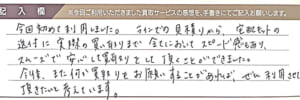 記入欄 ※今回ご利用いただきました買取サービスの感想を、手書きにてご記入お願いします。
今回初めて利用しました。オンラインでの見積りから、宅配キットの
送付に実際の買い取りまで全てにおいてスピード感もあり、
スムーズで安心して買取りをして頂くことができました。
今後、また何か買取りをお願いすることがあれば、ぜひ利用させて
頂きたいと考えています。